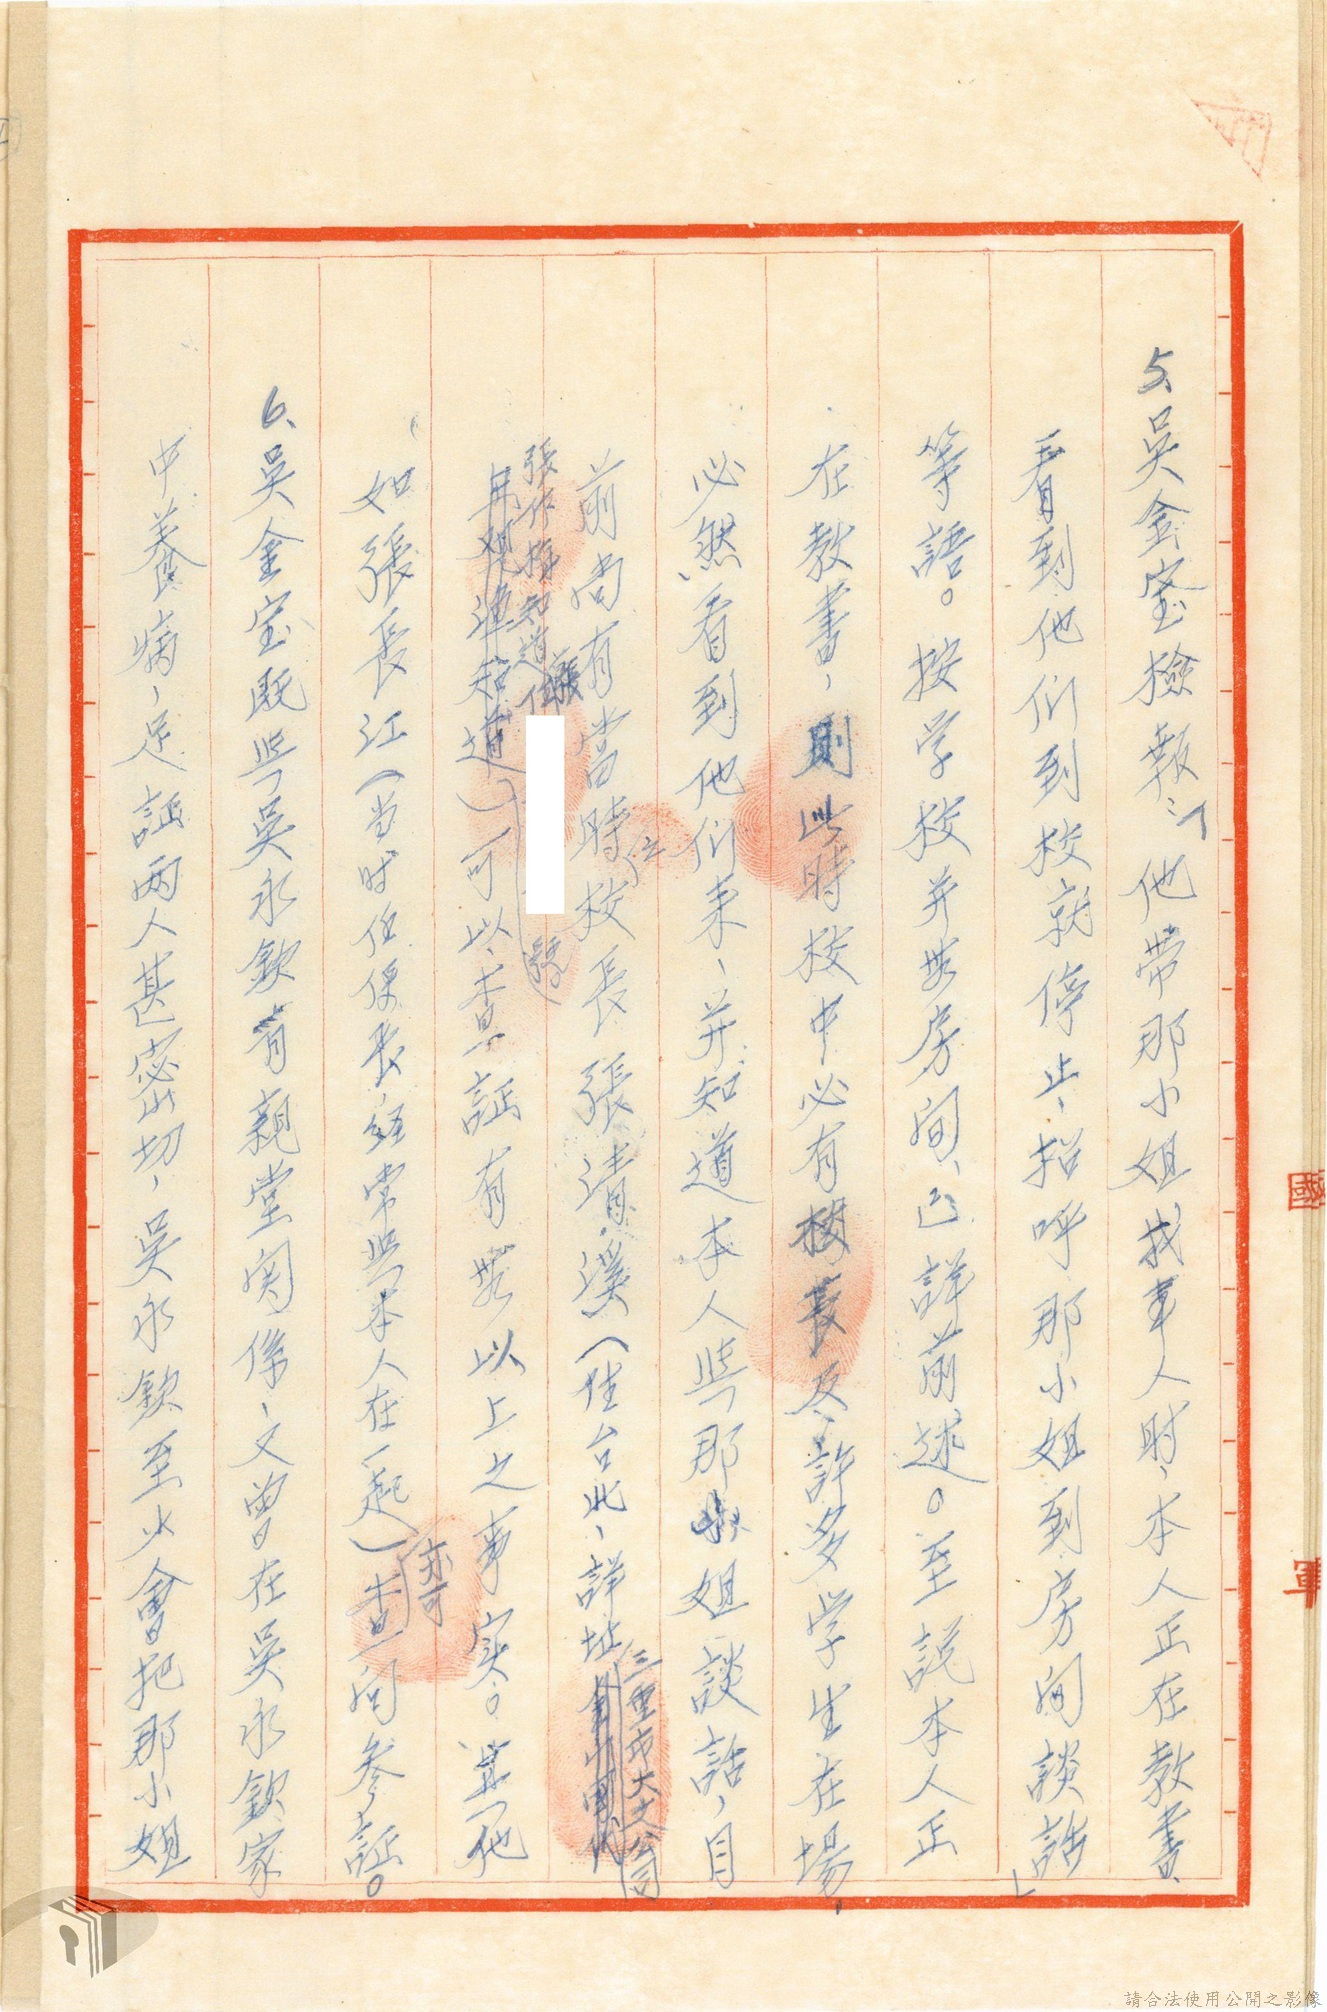 5、吳金宝檢報：「他带那小姐找車人时，本人正在教書、
看到他们到校就停止、招呼那小姐到房间談話」
等語。按学校并無房间、已詳前述。至説本人正
在教書，則此時校中必有校長及許多学生在場，
必然看到他们来、并知道本人與那小姐談話，目
前尚有當時校長張清溪（住台北、詳址
三重市大丈公司
位
張作梅知道住
號
知道）可以查証有無以上之事実。其他
如張長江（当时任保長，经常與本人在一起）查问参証。
亦可
6、吳金宝既與吳永欽有親堂関係、又曾在吳永欽家
中养病，足証两人甚密切，吳永欽至少會把那小姐
國
軍
請合法使用公開之影像